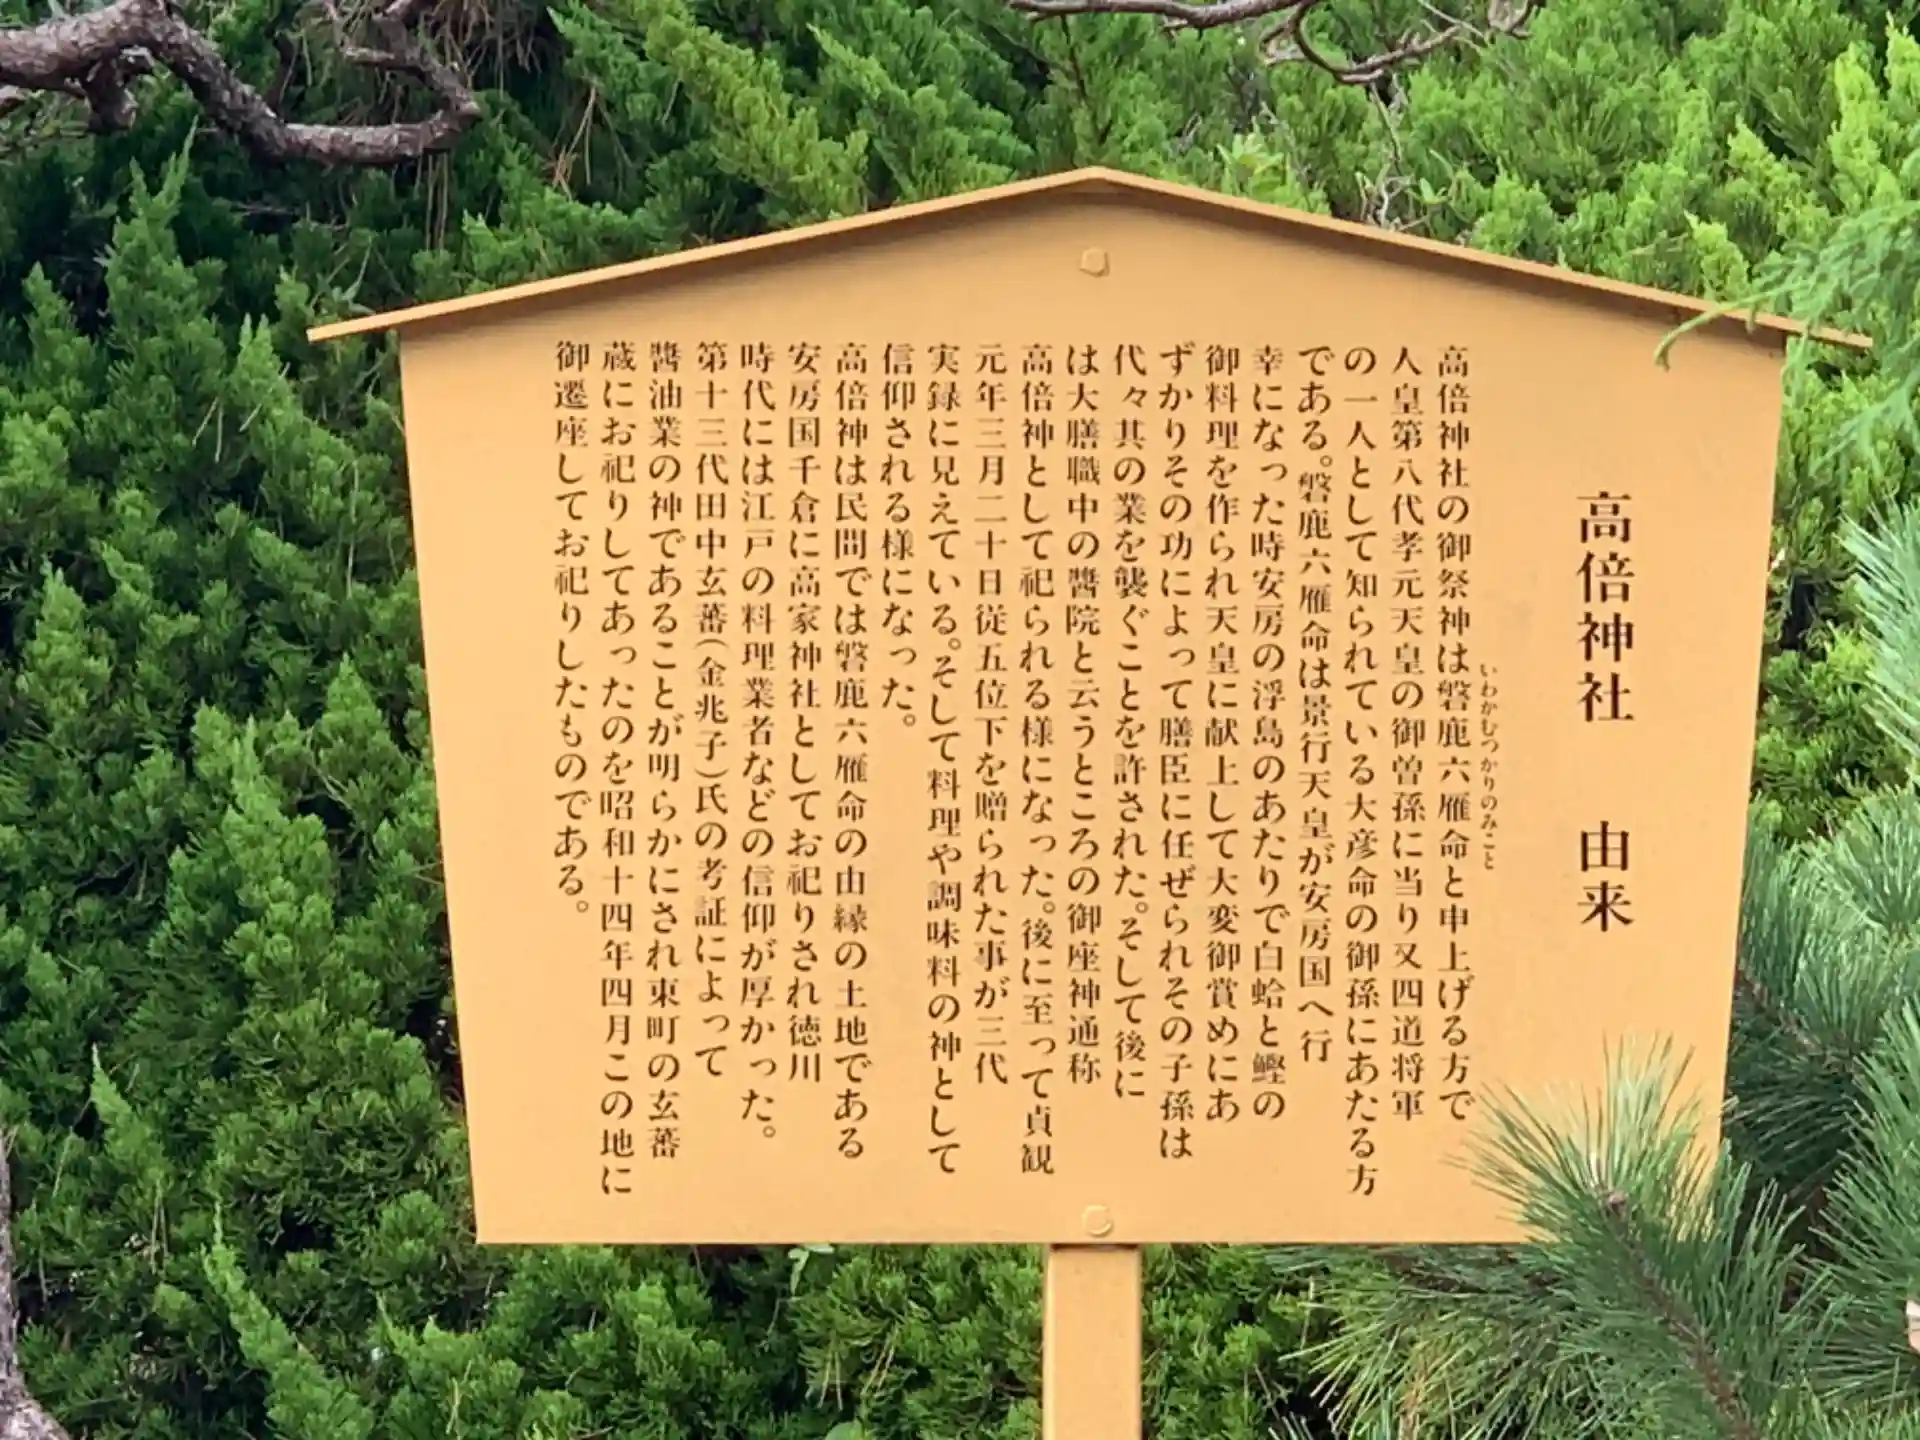 高倍神社 由来
高倍神社の御祭神は磐鹿六雁命と申上げる方で
いわかむつかりのみこと
人皇第八代孝元天皇の御曽孫に当り又四道将軍
の一人として知られている大彦命の御孫にあたる方
である。磐鹿六雁命は景行天皇が安房国へ行
幸になった時安房の浮島のあたりで白蛤と鰹の
御料理を作られ天皇に献上して大変御賞めにあ
ずかりその功によって膳臣に任ぜられその子孫は
代々其の業を襲ぐことを許された。そして後に
は大膳職中の醬院と云うところの御座神通称
高倍神として祀られる様になった。後に至って貞観
元年三月二十日従五位下を贈られた事が三代
実録に見えている。そして料理や調味料の神として
信仰される様になった。
高倍神は民間では磐鹿六雁命の由縁の土地である
安房国千倉に高家神社としてお祀りされ徳川
時代には江戸の料理業者などの信仰が厚かった。
第十三代田中玄蕃(金兆子)氏の考証によって
醬油業の神であることが明らかにされ東町の玄蕃
蔵にお祀りしてあったのを昭和十四年四月この地に
御遷座してお祀りしたものである。